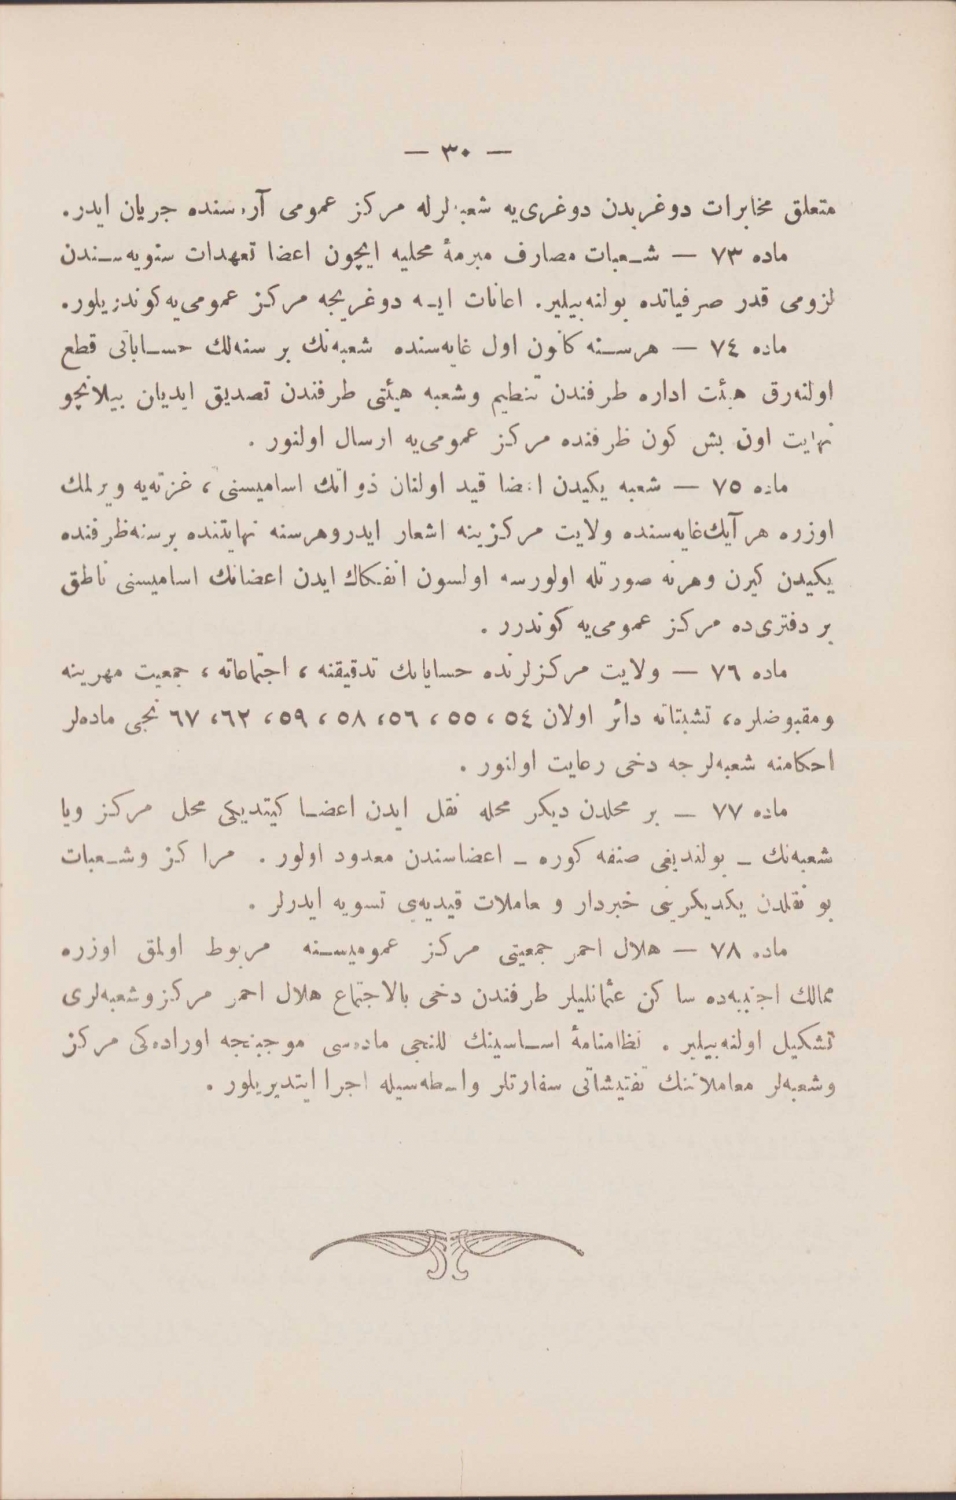 — ٣٠ —
متعلق مخابرات دوغریدن دوغری‌یه شعبه‌لرله مرکز عمومی آره‌سنده جریان ایدر.
ماده ٧٣ — شـعبات مصارف مبرمهٔ محلیه ایچون اعضا تعهدات سنویه‌سـندن
لزومی قدر صرفیاتده بولنه‌بیلیر. اعانات ایسه دوغریجه مرکز عمومی‌یه کوندریلور.
ماده ٧٤ — هرسـنه کانون اول غایه‌سنده شعبه‌نك بر سنه‌لك حسـاباتی قطع
اولنه‌رق هیئت اداره طرفندن تنظیم وشعبه هیئتی طرفندن تصدیق ایدیان بیلانچو
نهایت اون بش کون ظرفنده مرکز عمومی‌یه ارسال اولنور .
ماده ٧٥ — شعبه یکیدن اعضا قید اولنان ذواتك اسامیسنی ، غزته‌یه ویرلمك
اوزره هر آیك‌غایه‌سنده ولایت مرکزینه اشعار ایدروهرسنه نهایتنده برسنه‌ظرفنده
یکیدن کیرن وهرنه صورتله اولورسه اولسون انفکاك ایدن اعضانك اسامیسنی ناطق
بر دفتری‌ده مرکز عمومی‌یه کوندرر .
ماده ٧٦ — ولایت مرکزلرنده حساباتك تدقیقنه ، اجتماعاته ، جمعیت مهرینه
ومقبوضلره، تشبثاته دائر اولان ٥٤ ، ٥٥ ، ٥٦، ٥٨ ، ٥٩، ٦٢، ٦٧ نجی ماده‌لر
احکامنه شعبه‌لرجه دخی رعایت اولنور .
ماده ٧٧ — بر محلدن دیکر محله نقل ایدن اعضـا کیتدیکی محل مرکز ویا
شعبه‌نك ـ بولندیغی صنفه کوره ـ اعضاسندن معدود اولور . مراکز وشـعبات
بو نقلدن یکدیکرینی خبردار و معاملات قیدیه‌یی تسویه ایدرلر .
ماده ٧٨ — هلال احمر جمعیتی مرکز عمومیسـنه مربوط اولمق اوزره
ممالك اجنبیه‌ده ساکن عثمانلیلر طرفندن دخی بالاجتماع هلال احمر مرکزوشعبه‌لری
تشکیل اولنه‌بیلیر . نظامنامهٔ اسـاسینك اللنجی ماده‌سی موجبنجه اوراده‌کی مرکز
وشعبه‌لر معاملاتنك تفتیشاتی سفارتلر واسطه‌سیله اجرا ایتدیریلور .